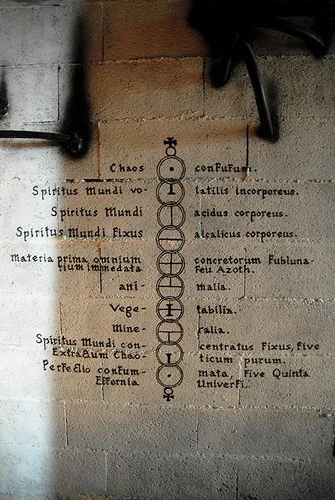 Chaos confufum.
Spiritus Mundi vo- latilis incorporeus.
Spiritus Mundi acidus corporeus.
Spiritus Mundi Fixus alcalicus corporeus.
Materia prima omnium concretorum Fubluna-
tium immedata Feu Azoth.
ani- malia.
Vege- tabilia.
Mine- ralia.
Spiritus Mundi con- centratus Fixus, Five
Extradum Chao- ticum purum.
Perfedio confum- mata, Five Quinta
Effernia Univerfi.